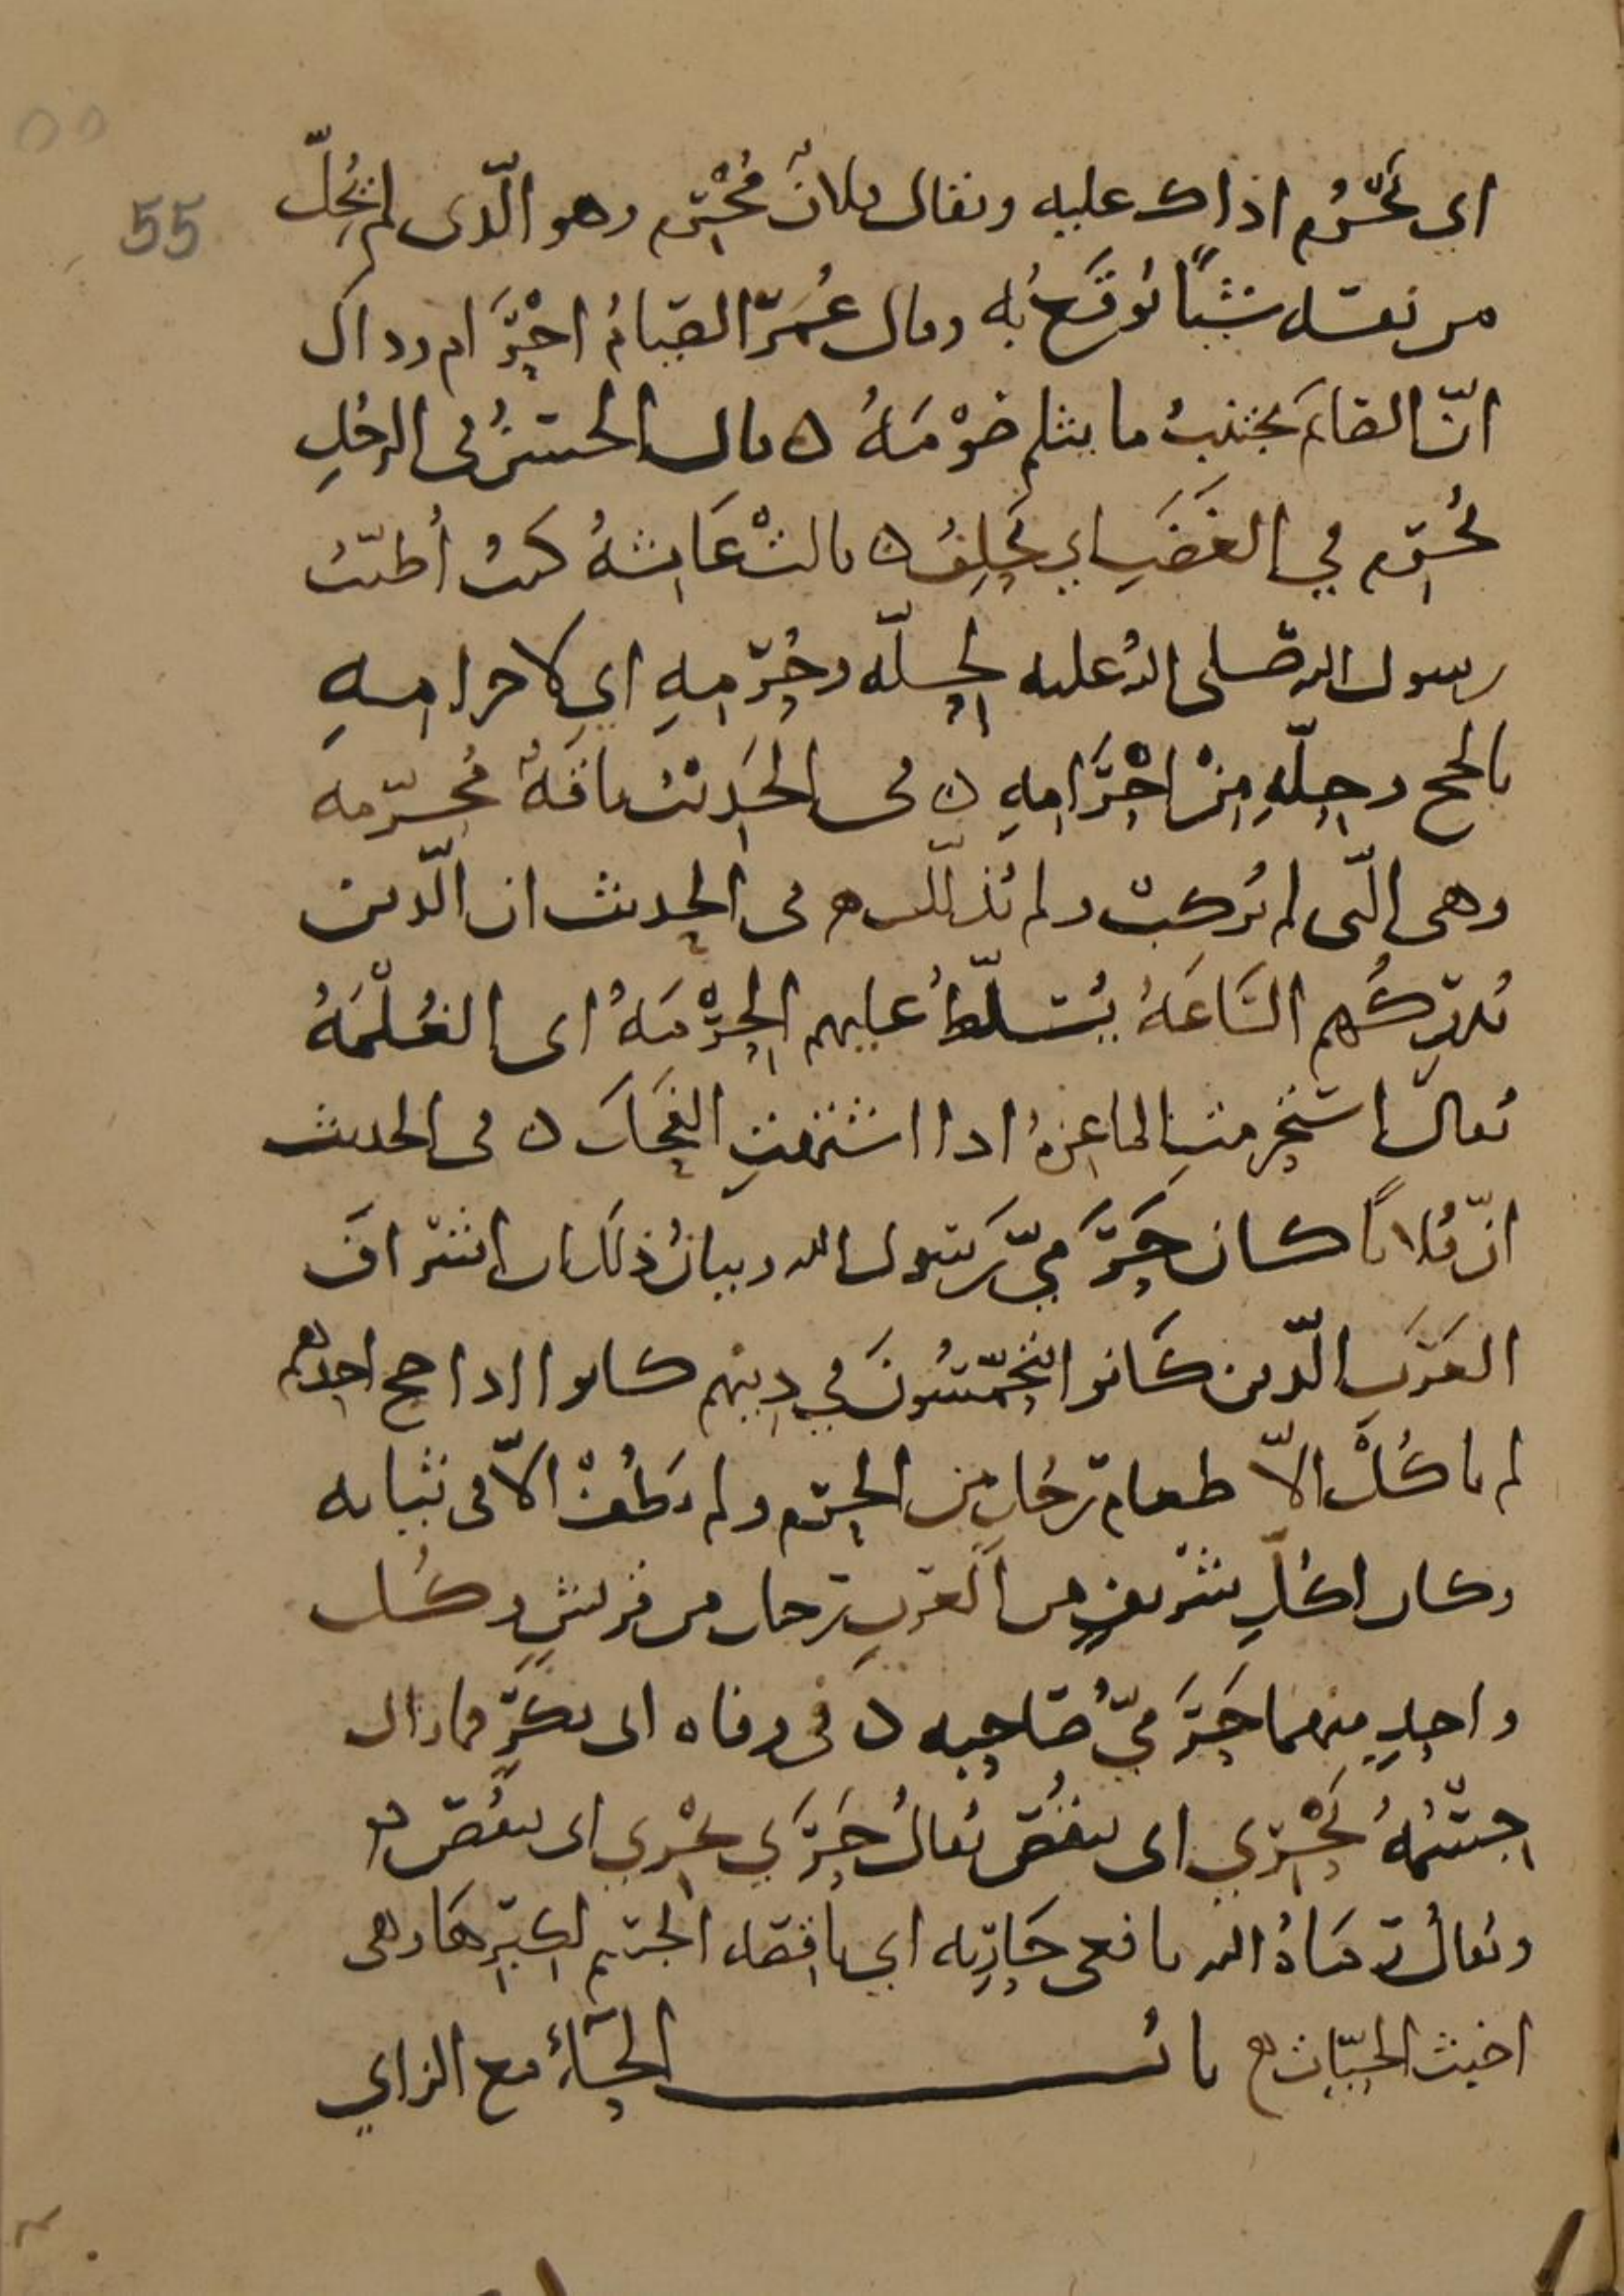 55
اي يَحْرُم اذاك عليه ويقال فلانٌ مُحْرِم وهو الّذى لم يُحِلّ
من نفسه شيئًا يُوقَع به وقال عُمَر الصيامُ احْرَام وذاك
انّ الصائمَ يجتنبُ ما يثلم صَوْمَهُ ه قال الحسنُ في الرجُلِ
يُحْرِم في الغَضَبِ اي يَحلِفُ ه قالتْ عَائشةُ كنتُ أُطيّبُ
رسول الله صلى الله عليه لِحِلّه وحُرْمِهِ اي لاحرامِهِ
بالحج وحِلّهِ مِنْ احْرَامِهِ ه في الحَديث ناقةٌ مُحرّمه
وهى الّتى لم تُركبْ ولم تُذلّل ه في الحديث ان الّذين
تُدرِكُهم السَّاعَةُ يُسَلّطُ عليهم الحِرْمَةُ اى الغُلْمَةُ
يُقال استَحْرمتِ الماعِزةُ اذا اشتهتِ الفَحْلَ ه في الحديث
انّ فُلانًا كان حَرَمِيَّ رَسُول الله وبيانُ ذلك ان اشْرافَ
العَرَبِ الّذين كَانوا يتحمّسُونَ في دِينِهم كانوا اذا حج احدهم
لم ياكُلْ الاّ طعام رَجُلٍ من الحرَم ولم يَطُفْ الاّ فى ثيابه
وكان لكُلِّ شَرِيفٍ من العَرَبِ رجل من قريشٍ وكُل
واحِدٍ منهما حَرَمِيُّ صَاحِبه ه في وفاه ابى بكرٍ فما زال
جِسْمُهُ يَحْرِي اى ينقُصُ يُقالُ حَرَى يَحْري اى ينقُص ه
ويُقالُ رَمَاهُ الله بافعى حَارِيه اي ناقِصَه الجِسْم لكِبَرِهَا وهى
اخبث الحيّات ه بابُ الحَاءِ مع الزاي